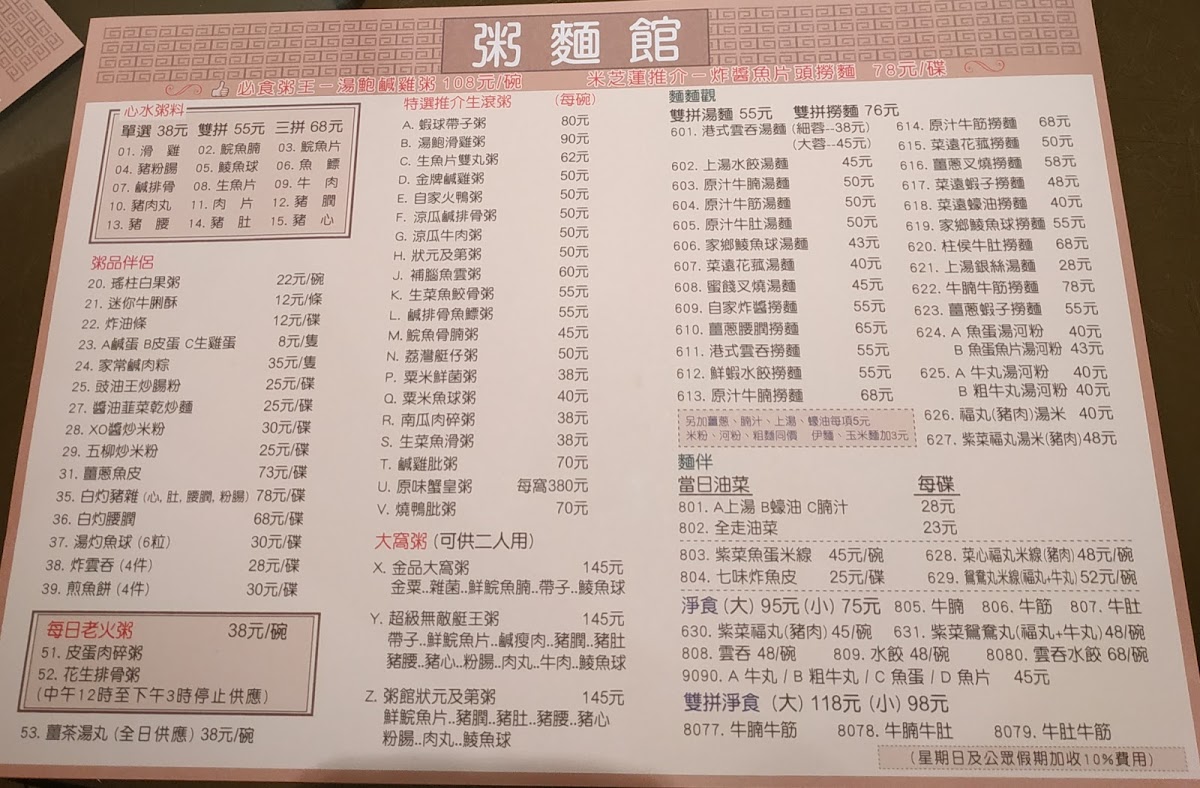 粥麵館
必食粥王－湯鮑鹹雞粥 108元/碗
米芝蓮推介－炸醬魚片頭撈麵 78元/碟
心水粥料
單選 38元 雙拼 55元 三拼 68元
01. 滑雞 02. 鯇魚腩 03. 鯇魚片
04. 豬粉腸 05. 鯪魚球 06. 魚鰾
07. 鹹排骨 08. 生魚片 09. 牛肉
10. 豬肉丸 11. 肉片 12. 豬膶
13. 豬腰 14. 豬肚 15. 豬心
粥品伴侶
20. 瑤柱白果粥 22元/碗
21. 迷你牛脷酥 12元/條
22. 炸油條 12元/碟
23. A鹹蛋 B皮蛋 C生雞蛋 8元/隻
24. 家常鹹肉粽 35元/隻
25. 豉油王炒腸粉 25元/碟
27. 醬油韮菜乾炒麵 25元/碟
28. XO醬炒米粉 30元/碟
29. 五柳炒米粉 25元/碟
31. 薑蔥魚皮 73元/碟
35. 白灼豬雜 (心, 肚, 腰膶, 粉腸) 78元/碟
36. 白灼腰膶 68元/碟
37. 湯灼魚球 (6粒) 30元/碟
38. 炸雲吞 (4件) 28元/碟
39. 煎魚餅 (4件) 30元/碟
每日老火粥 38元/碗
51. 皮蛋肉碎粥
52. 花生排骨粥
(中午12時至下午3時停止供應)
53. 薑茶湯丸 (全日供應) 38元/碗
特選推介生滾粥 (每碗)
A. 蝦球帶子粥 80元
B. 湯鮑滑雞粥 90元
C. 生魚片雙丸粥 62元
D. 金牌鹹雞粥 50元
E. 自家火鴨粥 50元
F. 涼瓜鹹排骨粥 50元
G. 涼瓜牛肉粥 50元
H. 狀元及第粥 50元
J. 補腦魚雲粥 60元
K. 生菜魚鮫骨粥 55元
L. 鹹排骨魚鰾粥 55元
M. 鯇魚骨腩粥 45元
N. 荔灣艇仔粥 50元
P. 粟米鮮菌粥 38元
Q. 粟米魚球粥 40元
R. 南瓜肉碎粥 38元
S. 生菜魚滑粥 38元
T. 鹹雞肶粥 70元
U. 原味蟹皇粥 每窩380元
V. 燒鴨肶粥 70元
大窩粥 (可供二人用)
X. 金品大窩粥 145元
金粟..雜菌..鮮鯇魚腩..帶子..鯪魚球
Y. 超級無敵艇王粥 145元
帶子..鮮鯇魚片..鹹瘦肉..豬膶..豬肚
豬腰..豬心..粉腸..肉丸..牛肉..鯪魚球
Z. 粥館狀元及第粥 145元
鮮鯇魚片..豬膶..豬肚..豬腰..豬心
粉腸..肉丸..鯪魚球
麵麵觀
雙拼湯麵 55元 雙拼撈麵 76元
601. 港式雲吞湯麵 (細蓉--38元)
(大蓉--45元)
602. 上湯水餃湯麵 45元
603. 原汁牛腩湯麵 50元
604. 原汁牛筋湯麵 50元
605. 原汁牛肚湯麵 50元
606. 家鄉鯪魚球湯麵 43元
607. 菜遠花菰湯麵 40元
608. 蜜餞叉燒湯麵 45元
609. 自家炸醬撈麵 55元
610. 薑蔥腰膶撈麵 65元
611. 港式雲吞撈麵 55元
612. 鮮蝦水餃撈麵 55元
613. 原汁牛腩撈麵 68元
614. 原汁牛筋撈麵 68元
615. 菜遠花菰撈麵 50元
616. 薑蔥叉燒撈麵 58元
617. 菜遠蝦子撈麵 48元
618. 菜遠蠔油撈麵 40元
619. 家鄉鯪魚球撈麵 55元
620. 柱侯牛肚撈麵 68元
621. 上湯銀絲湯麵 28元
622. 牛腩牛筋撈麵 78元
623. 薑蔥蝦子撈麵 55元
624. A 魚蛋湯河粉 40元
B 魚蛋魚片湯河粉 43元
625. A 牛丸湯河粉 40元
B 粗牛丸湯河粉 40元
626. 福丸(豬肉)湯米 40元
627. 紫菜福丸湯米(豬肉)48元
另加薑蔥、腩汁、上湯、蠔油每項5元
米粉、河粉、粗麵同價 伊麵、玉米麵加3元
麵伴
當日油菜 每碟
801. A上湯 B蠔油 C腩汁 28元
802. 全走油菜 23元
803. 紫菜魚蛋米線 45元/碗 628. 菜心福丸米線(豬肉)48元/碗
804. 七味炸魚皮 25元/碟 629. 鴛鴦丸米線(福丸+牛丸)52元/碗
淨食 (大) 95元 (小) 75元 805. 牛腩 806. 牛筋 807. 牛肚
630. 紫菜福丸(豬肉) 45/碗 631. 紫菜鴛鴦丸(福丸+牛丸)48/碗
808. 雲吞 48/碗 809. 水餃 48/碗 8080. 雲吞水餃 68/碗
9090. A 牛丸 / B 粗牛丸 / C 魚蛋 / D 魚片 45元
雙拼淨食 (大) 118元 (小) 98元
8077. 牛腩牛筋 8078. 牛腩牛肚 8079. 牛肚牛筋
(星期日及公眾假期加收10%費用)